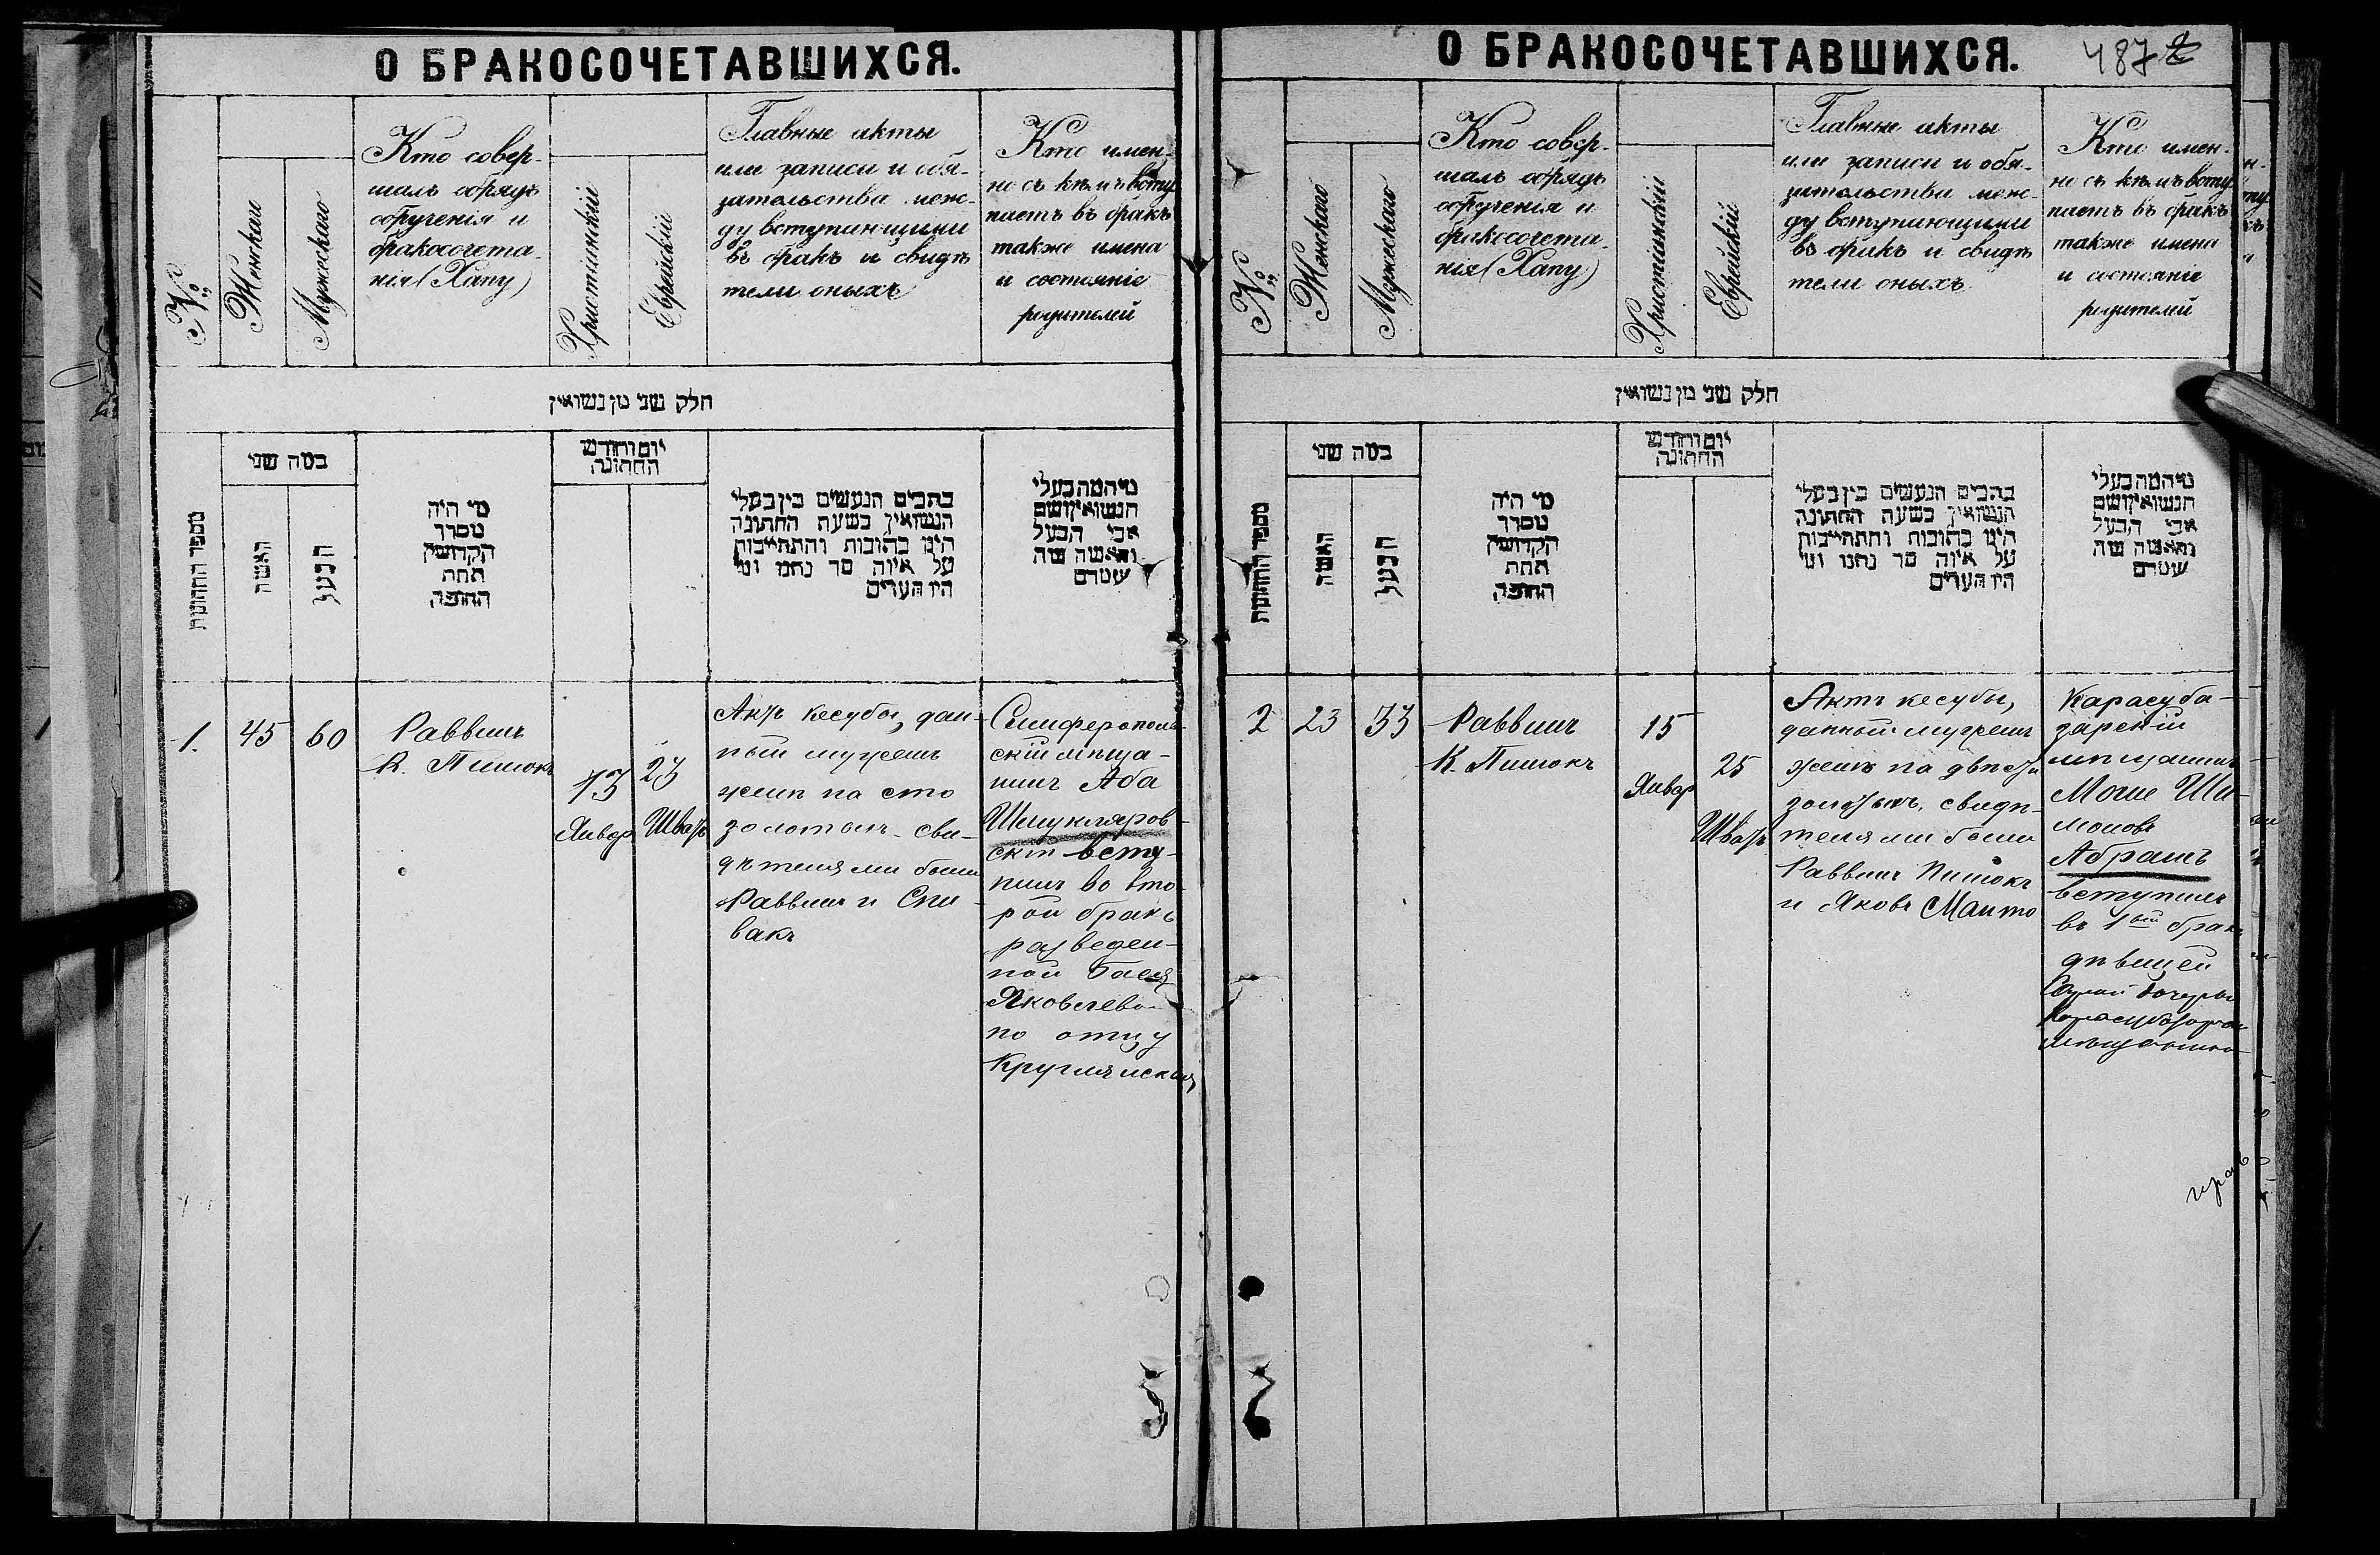 О БРАКОСОЧЕТАВШИХСЯ.
№
Женскаго
Мужескаго
Кто совер-
шалъ обрядъ
обрученія и
бракосочета-
нія (Хапу)
Христіанскій
Еврейскій
Главные акты
или записи и обя-
зательства меж-
ду вступающими
въ бракъ и свидѣ
тели оныхъ
Кто имен-
но съ кѣмъ всту
паетъ въ бракъ
также имена
и состояніе
родителей
חלק שני מן נשואין
מספר החתונות
במה שני
האשה
הבעל
מי היה
מסדר
הקדושין
תחת
החופה
יום וחודש
החתונה
כתבים הנעשים בין בעלי
הנשואין בשעת החתונה
היינו כתובות והתחייבות
על איזה סך נתנו ומי
היו העדים
מי המה בעלי
הנשואין ושם
אבי הבעל
והאשה מה
שטרם
1.
45
60
Раввинъ
К. Пишокъ
13
Январ
23
Шватъ
Актъ кесубы, дан-
ный мужемъ
женѣ на сто
золотыхъ. сви-
дѣтелями были
Раввинъ и Спи-
вакъ
Симферополь-
скій мѣща-
нинъ Аба
скій всту-
пилъ во вто-
рой бракъ
разведен-
ной Бася
Яковлева
по отцу
О БРАКОСОЧЕТАВШИХСЯ.
487
№
Женскаго
Мужескаго
Кто совер-
шалъ обрядъ
обрученія и
бракосочета-
нія (Хапу)
Христіанскій
Еврейскій
Главные акты
или записи и обя-
зательства меж-
ду вступающими
въ бракъ и свидѣ
тели оныхъ
Кто имен-
но съ кѣмъ всту
паетъ въ бракъ
также имена
и состояніе
родителей
חלק שני מן נשואין
מספר החתונות
במה שני
האשה
הבעל
מי היה
מסדר
הקדושין
תחת
החופה
יום וחודש
החתונה
כתבים הנעשים בין בעלי
הנשואין בשעת החתונה
היינו כתובות והתחייבות
על איזה סך נתנו ומי
היו העדים
מי המה בעלי
הנשואין ושם
אבי הבעל
והאשה מה
שטרם
2
23
33
Раввинъ
К. Пишокъ
15
Январ
25
Шватъ
Актъ кесубы,
данный мужемъ
женѣ на двѣсти
золотыхъ. свидѣ-
телями были
Раввинъ Пишокъ
и Яковъ Манто
Карасуба-
зарскій
мѣщанинъ
Моше Ши-
моновъ
Абрамъ
вступилъ
въ 1ый бракъ
дѣвицей
дочерью